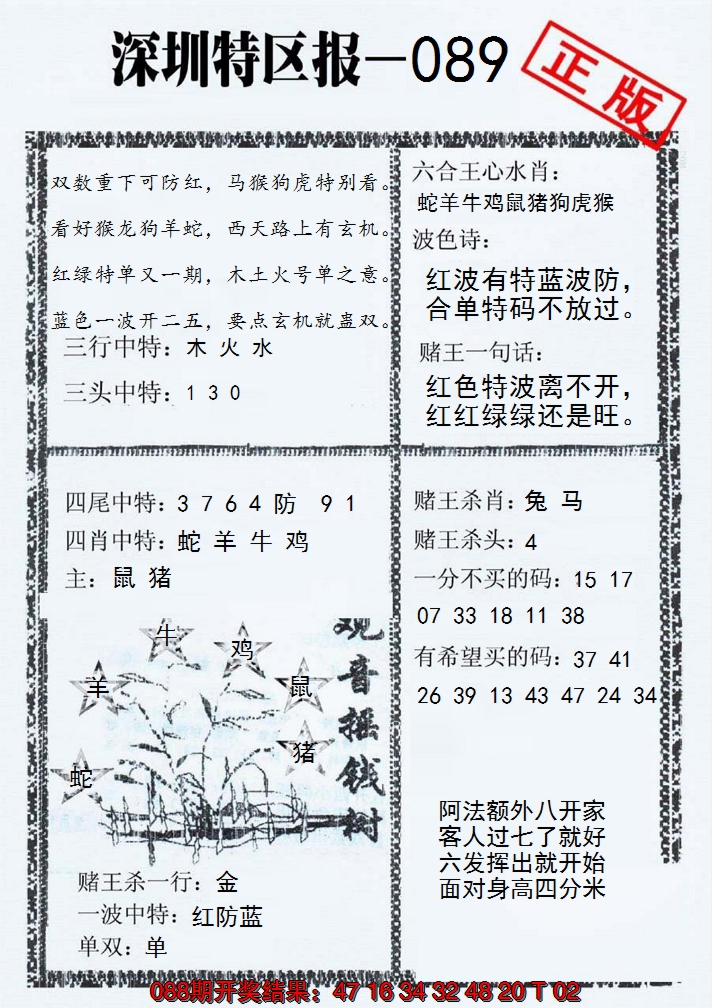 深圳特区报—089
正版
双数重下可防红，马猴狗虎特别看。
看好猴龙狗羊蛇，西天路上有玄机。
红绿特单又一期，木土火号单之意。
蓝色一波开二五，要点玄机就蛊双。
三行中特：木 火 水
三头中特：1 3 0
六合王心水肖：
蛇羊牛鸡鼠猪狗虎猴
波色诗：
红波有特蓝波防，
合单特码不放过。
赌王一句话：
红色特波离不开，
红红绿绿还是旺。
四尾中特：3 7 6 4 防 9 1
四肖中特：蛇 羊 牛 鸡
主：鼠 猪
观音摇钱树
牛
鸡
羊
鼠
猪
蛇
赌王杀一行：金
一波中特：红防蓝
单双：单
赌王杀肖：兔 马
赌王杀头：4
一分不买的码：15 17
07 33 18 11 38
有希望买的码：37 41
26 39 13 43 47 24 34
阿法额外八开家
客人过七了就好
六发挥出就开始
面对身高四分米
088期开奖结果：47 16 34 32 48 20 T 02